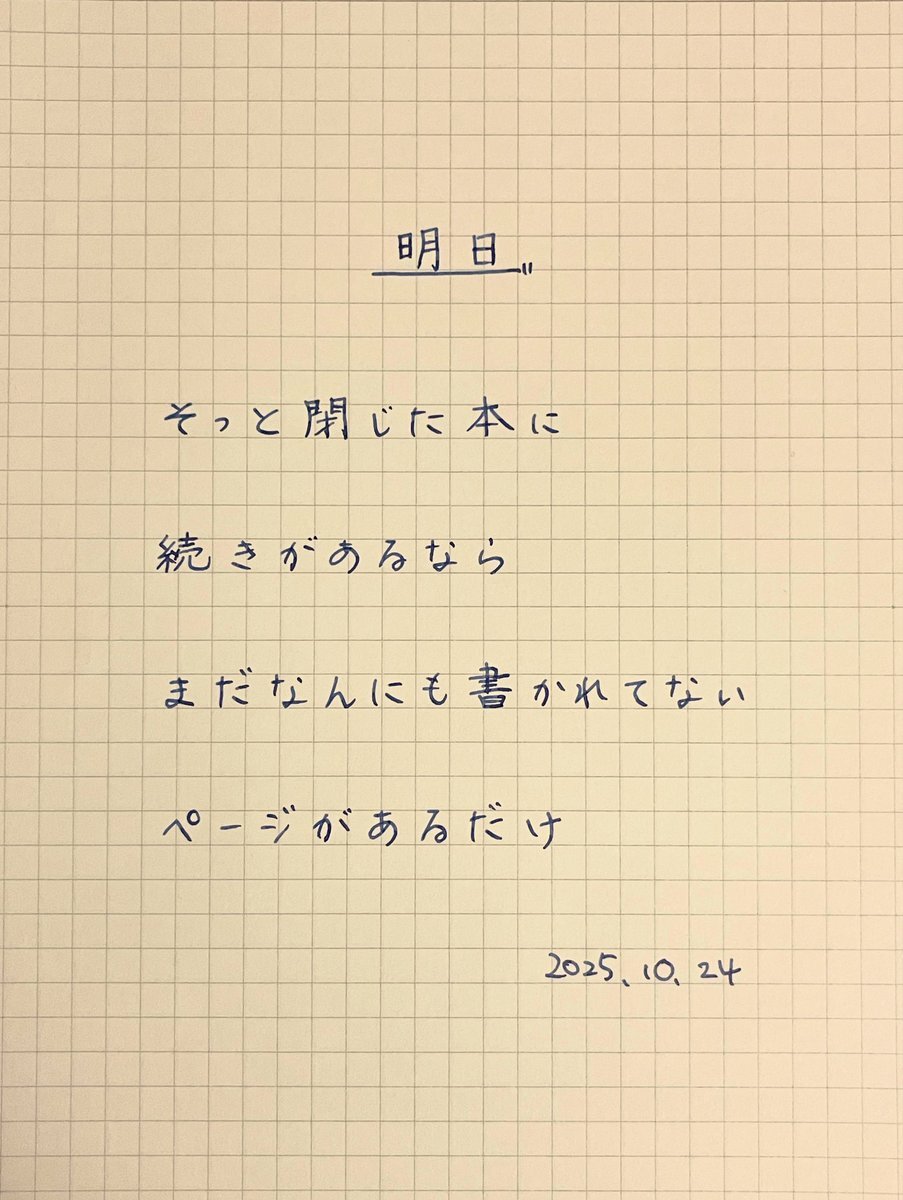 明日
そっと閉じた本に
続きがあるなら
まだなんにも書かれてない
ページがあるだけ
2025.10.24